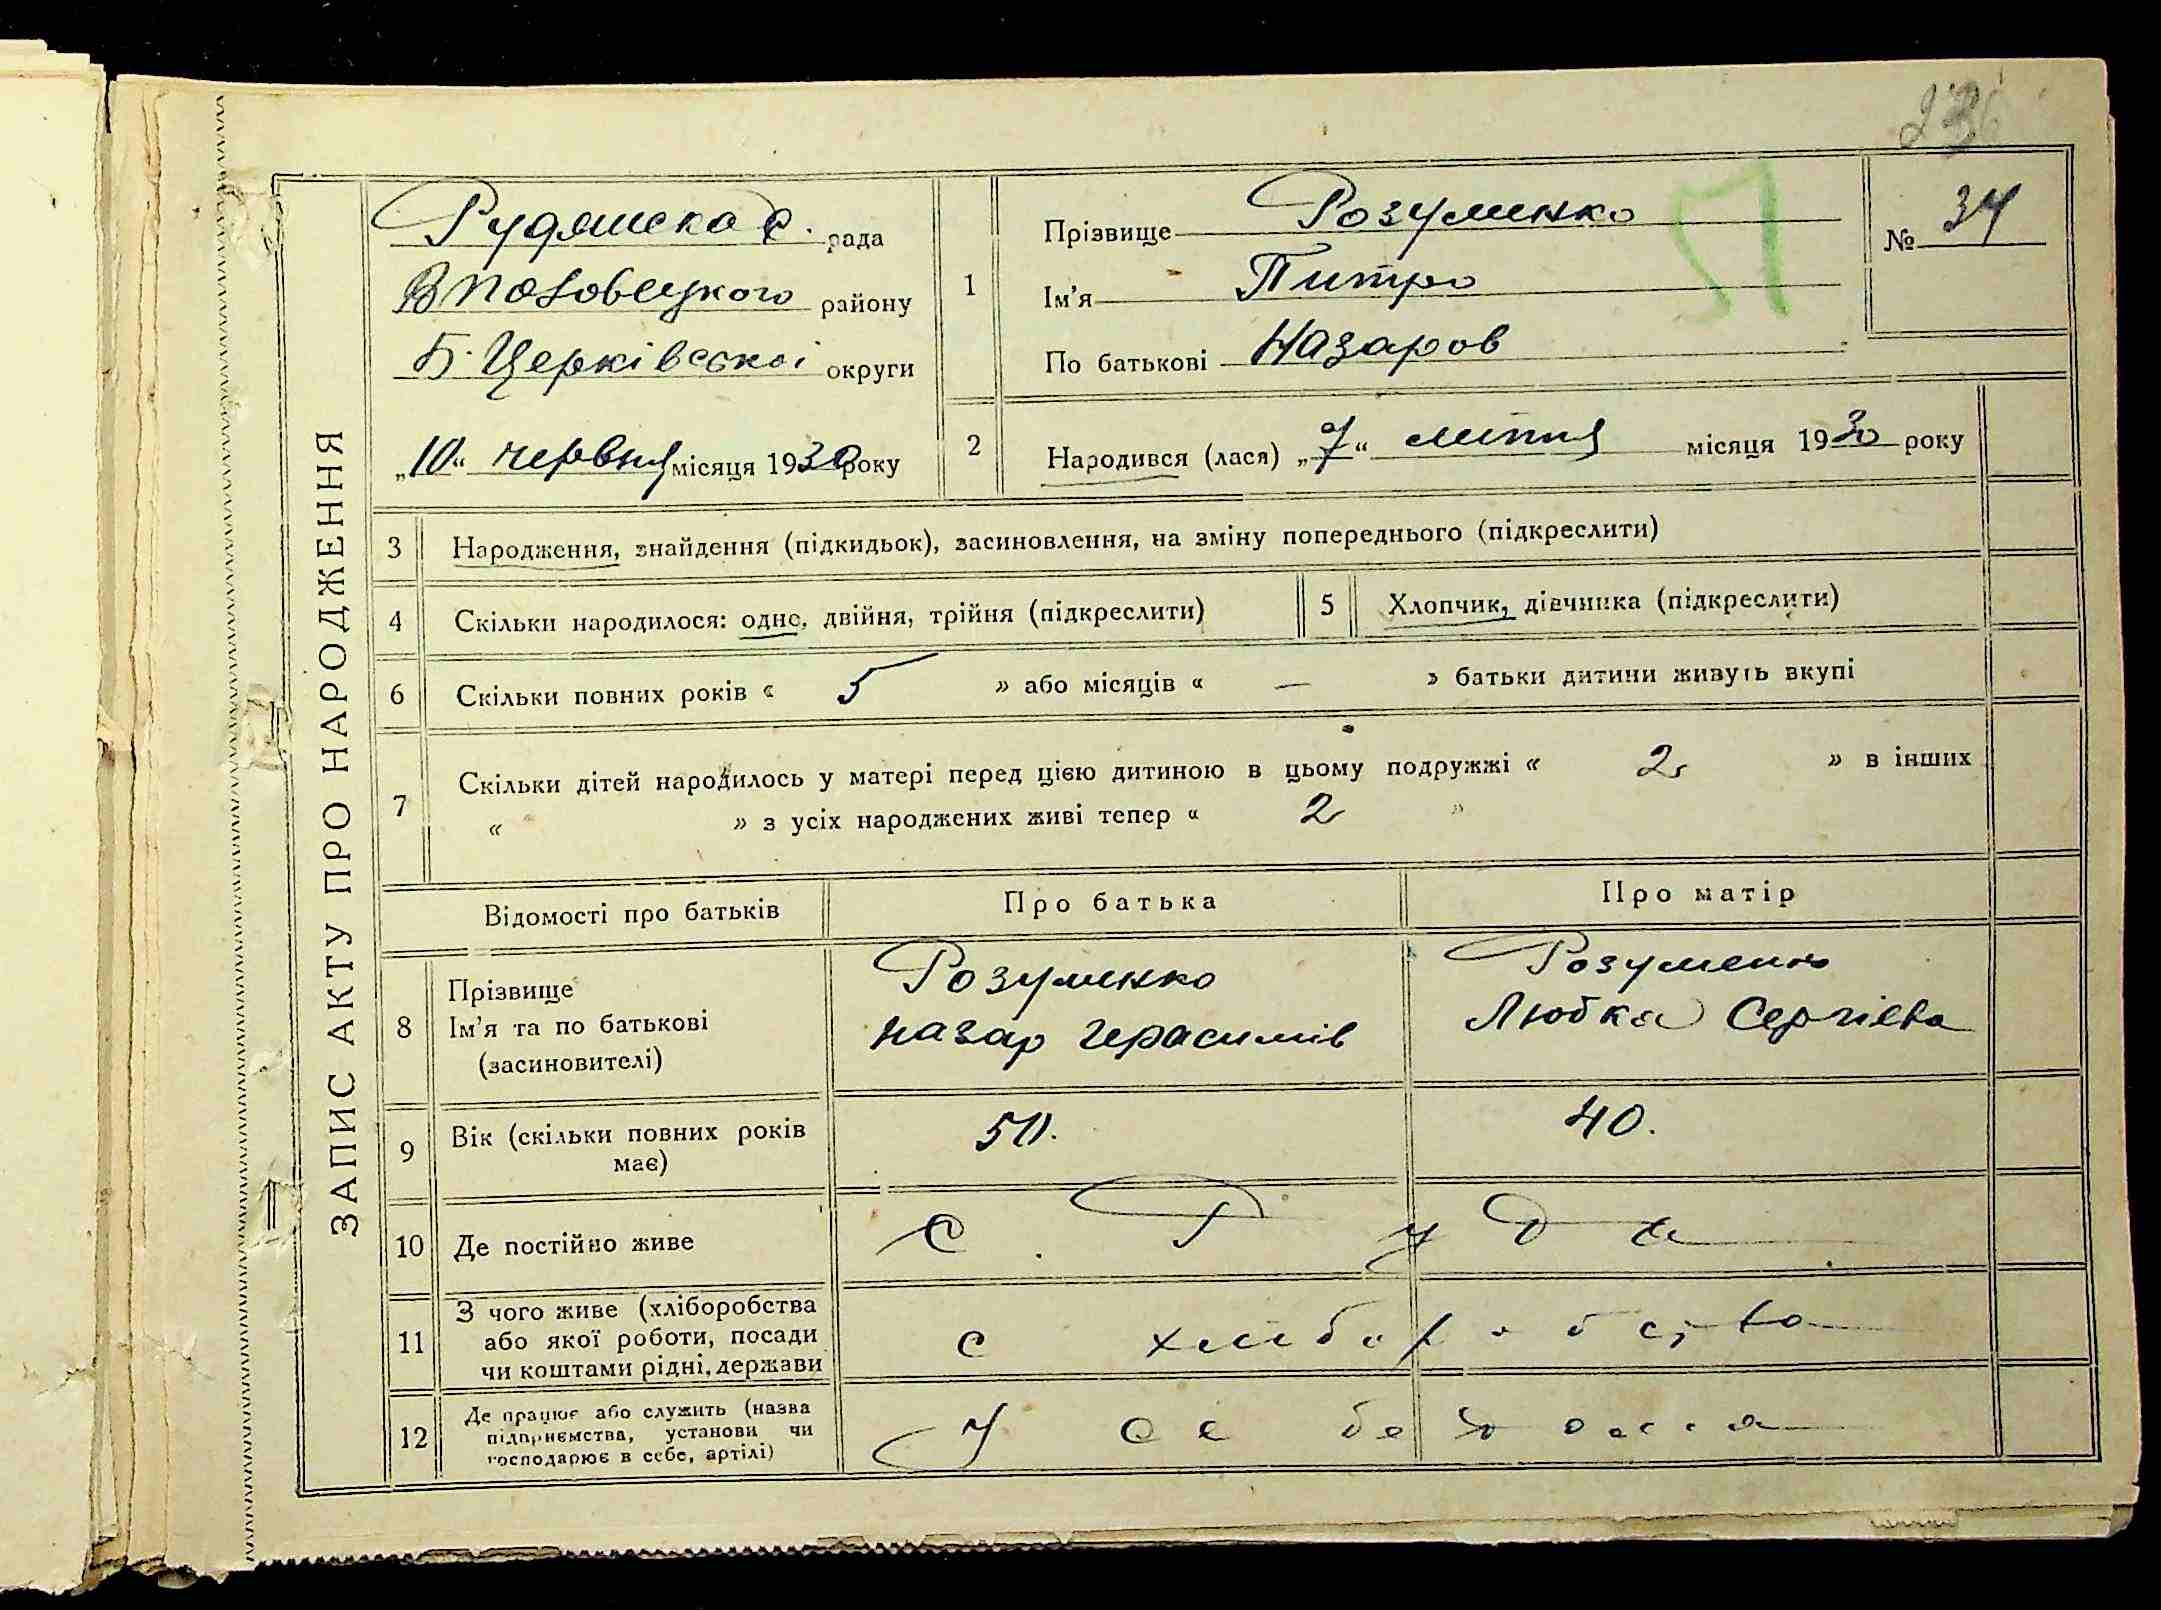 236
ЗАПИС АКТУ ПРО НАРОДЖЕННЯ
Рудянська с. рада
Володовецького району
Б. Церківської округи
„10“ червня місяця 1930 року
1
Прізвище Розуминко
Ім’я Питро
По батькові Назаров
№ 34
2
Народився (лася) „7“ липня місяця 1930 року
3 Народження, знайдення (підкидьок), засиновлення, на зміну попереднього (підкреслити)
4 Скільки народилося: одно, двійня, трійня (підкреслити)
5 Хлопчик, дівчинка (підкреслити)
6 Скільки повних років « 5 » або місяців « — » батьки дитини живуть вкупі
7 Скільки дітей народилось у матері перед цією дитиною в цьому подружжі « 2 » в інших
« » з усіх народжених живі тепер « 2 »
Відомості про батьків Про батька Про матір
8 Прізвище
Ім’я та по батькові
(засиновителі)
Розуминко
назар герасимів
Розуменко
Любка Сергієва
9 Вік (скільки повних років
має)
50. 40.
10 Де постійно живе
с. Руда
11 З чого живе (хліборобства
або якої роботи, посади
чи коштами рідні, держави
с хліборобства
12 Де працює або служить (назва
підприємства, установи чи
господарює в себе, артілі)
У се бе